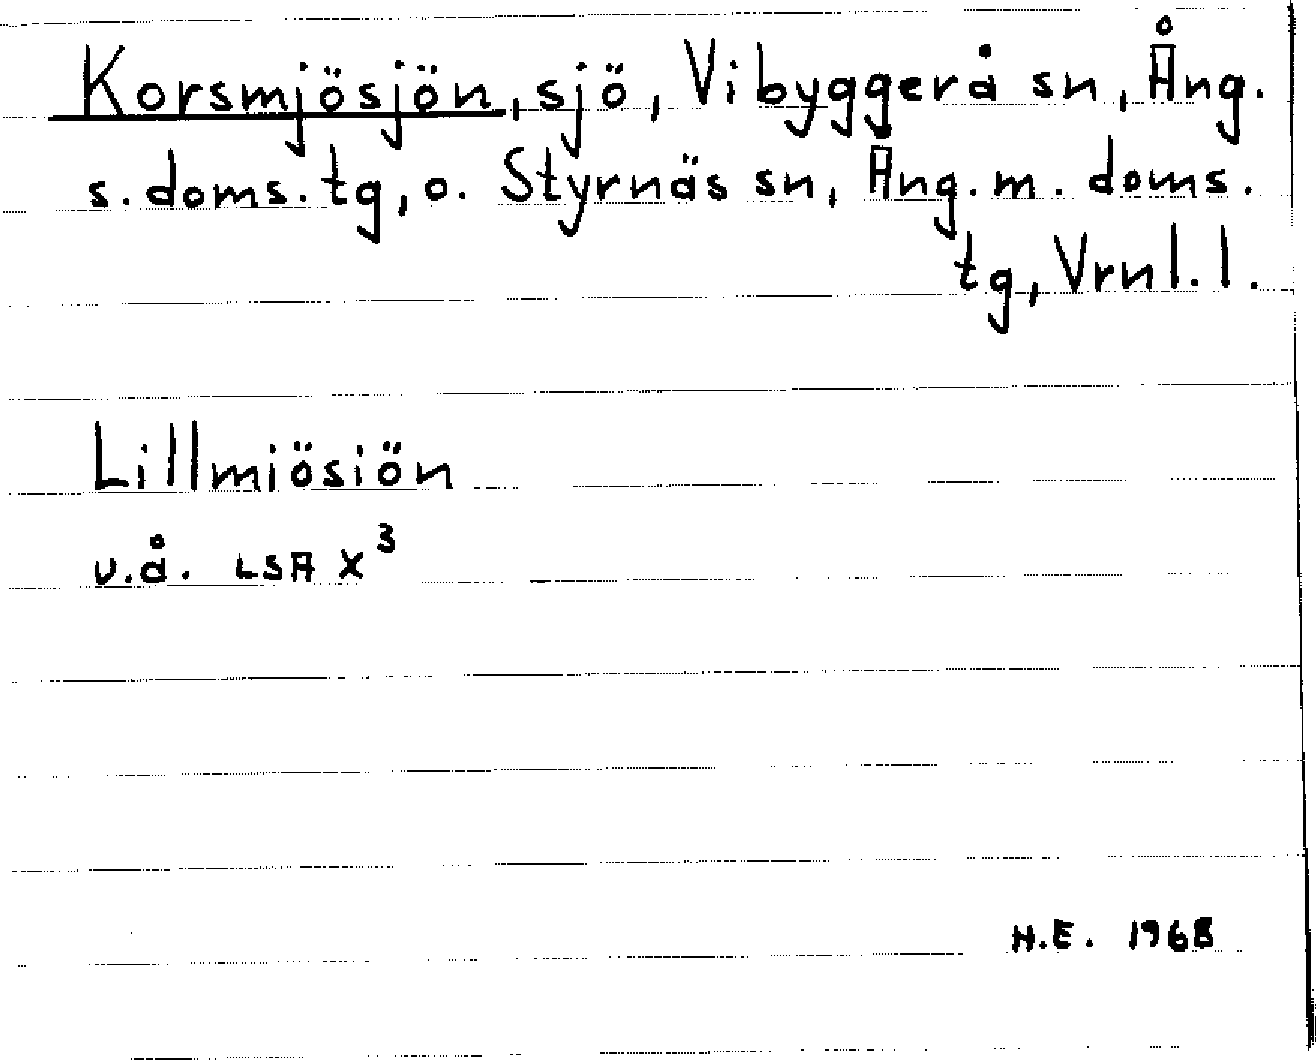 Korsmjösjön, sjö, Vibyggerå sn, Ång.
s. doms. tg, o. Styrnäs sn, Ång. m. doms.
tg, Vrnl. l.
Lillmiösiön
u.å. LSA X³
H.E. 1968